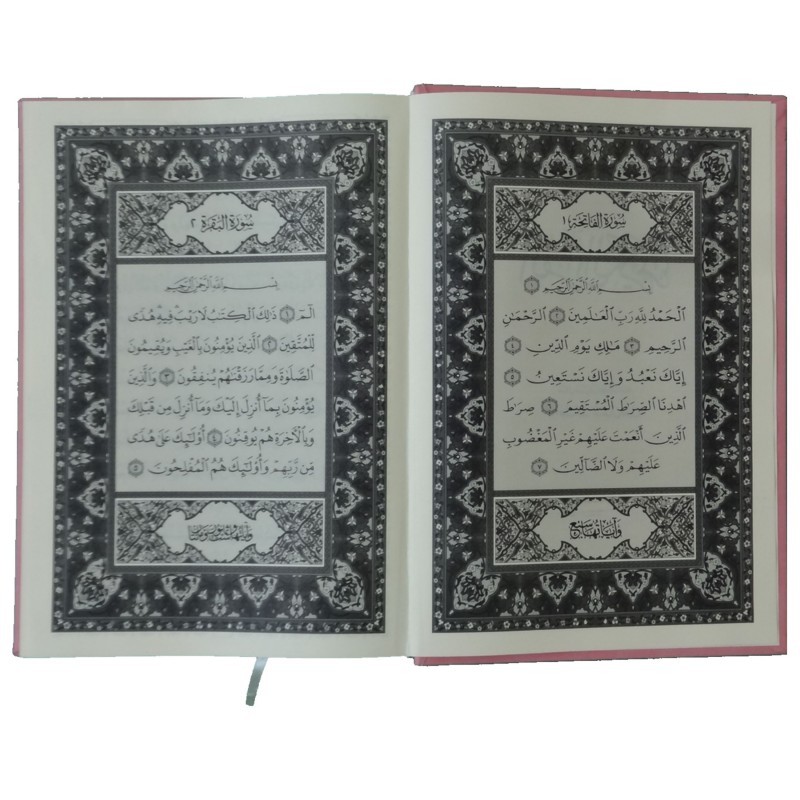 سورة الفاتحة ١
بسم الله الرحمن الرحيم ١
الحمد لله رب العلمين ٢ الرحمن
الرحيم ٣ ملك يوم الدين ٤
إياك نعبد وإياك نستعين ٥
اهدنا الصرط المستقيم ٦ صرط
الذين أنعمت عليهم غير المغضوب
عليهم ولا الضالين ٧
وآياتها سبع
سورة البقرة ٢
بسم الله الرحمن الرحيم
الم ١ ذلك الكتب لا ريب فيه هدى
للمتقين ٢ الذين يؤمنون بالغيب ويقيمون
الصلوة ومما رزقنهم ينفقون ٣ والذين
يؤمنون بما أنزل إليك وما أنزل من قبلك
وبالآخرة هم يوقنون ٤ أولئك على هدى
من ربهم وأولئك هم المفلحون ٥